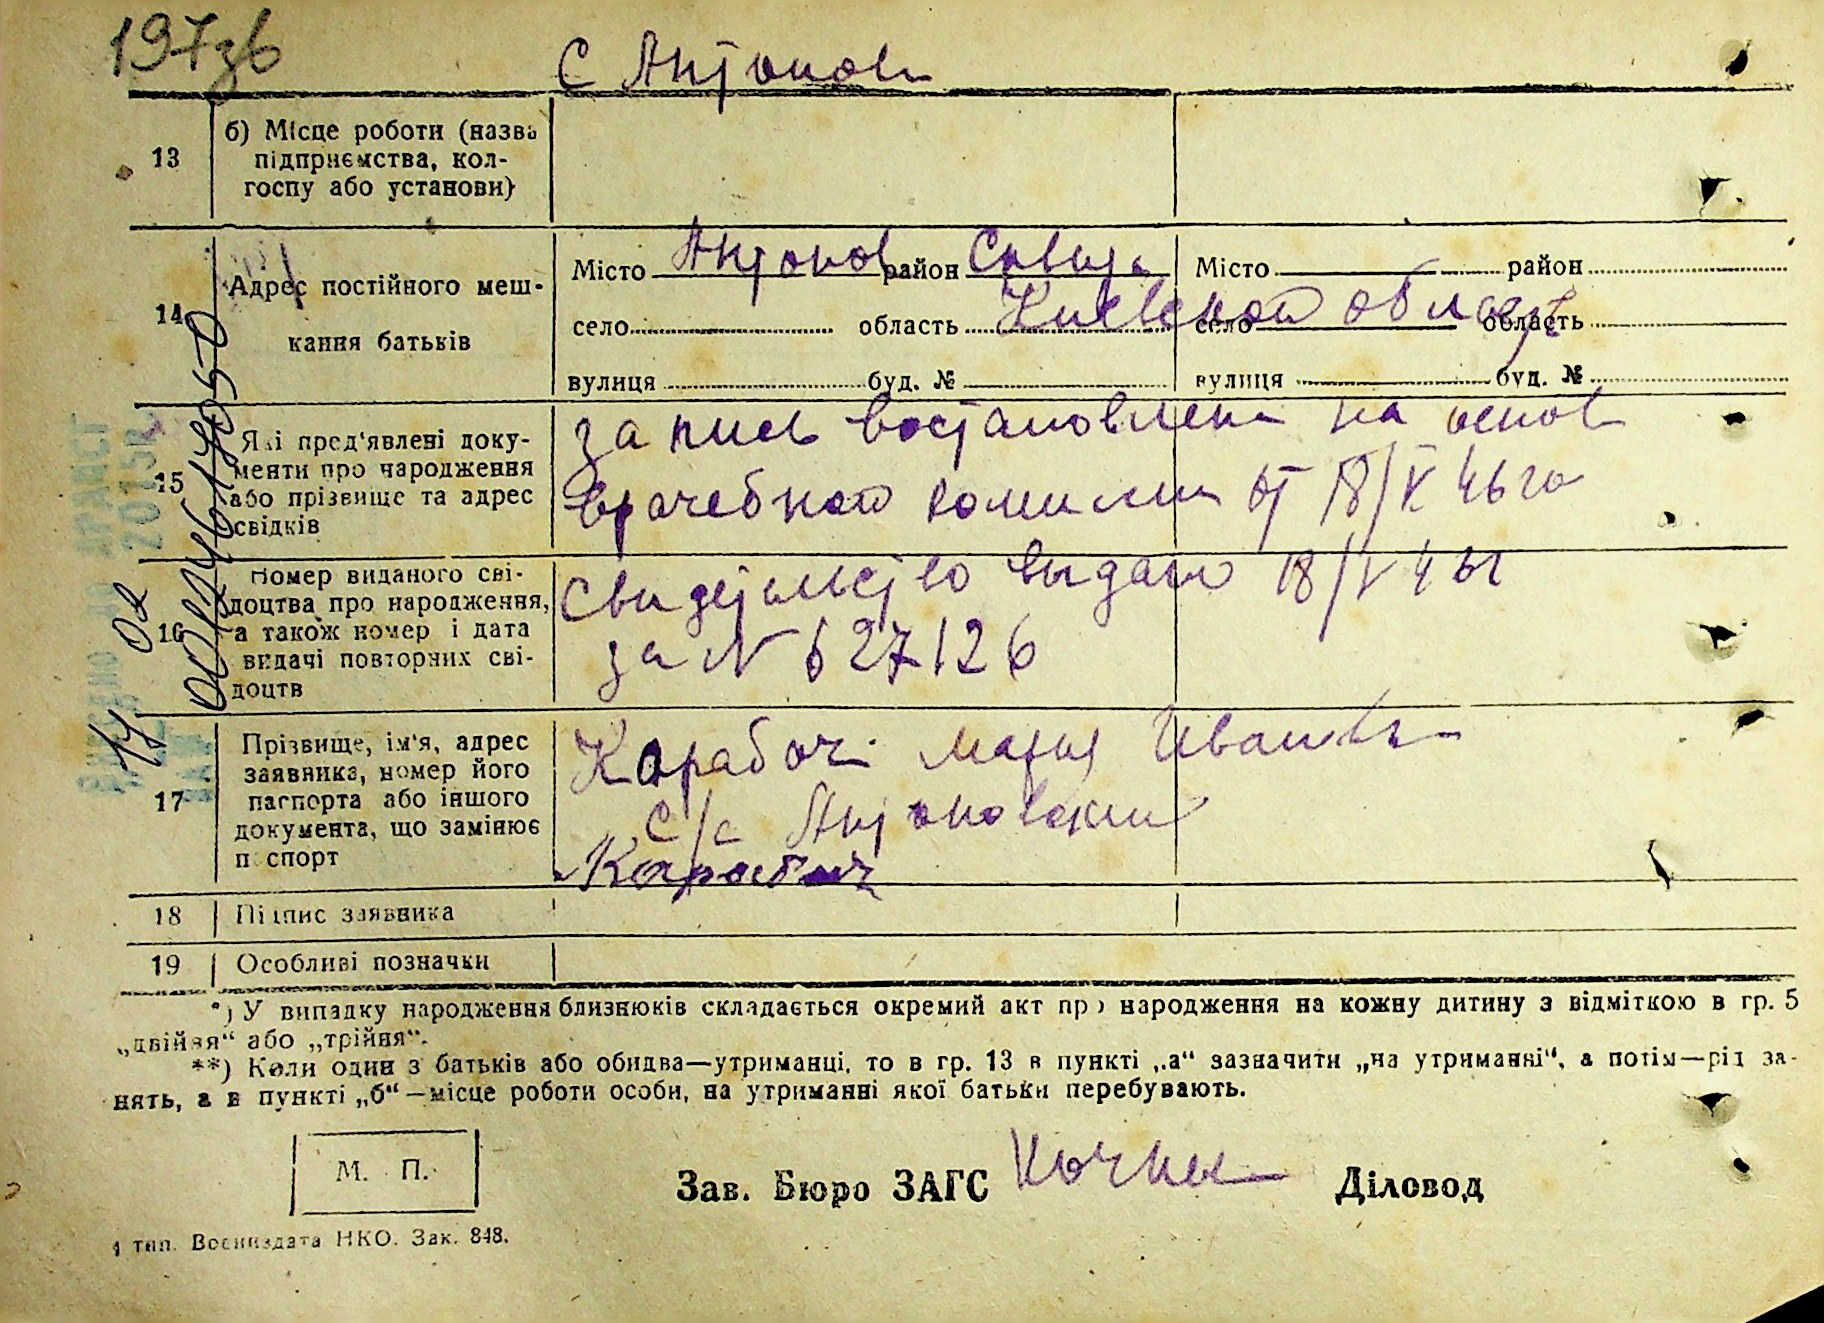 197зв
с Антонов
13 б) Місце роботи (назва
підприємства, кол-
госпу або установи)
14 Адрес постійного меш-
кання батьків
Місто Антонов район Сквир Місто район
село область Киевской области село область
вулиця буд. № вулиця буд. №
15 Які пред'явлені доку-
менти про народження
або прізвище та адрес
свідків
запись востановлена на основ
врачебной комисии от 18/V 46 го
16 Номер виданого сві-
доцтва про народження,
а також номер і дата
видачі повторних сві-
доцтв
Свидетельство выдано 18/V 46 г
за N 627126
17 Прізвище, ім'я, адрес
заявника, номер його
паспорта або іншого
документа, що замінює
паспорт
Карабач Мария Ивановн
с/с Антоновский
Карабач
18 Підпис заявника
19 Особливі позначки
*) У випадку народження близнюків складається окремий акт про народження на кожну дитину з відміткою в гр. 5
„двійня“ або „трійня“.
**) Коли один з батьків або обидва—утриманці, то в гр. 13 в пункті „а“ зазначити „на утриманні“, а потім—рід за-
нять, а в пункті „б“—місце роботи особи, на утриманні якої батьки перебувають.
М. П.
Зав. Бюро ЗАГС Діловод
1 тип. Воениздата НКО. Зак. 848.